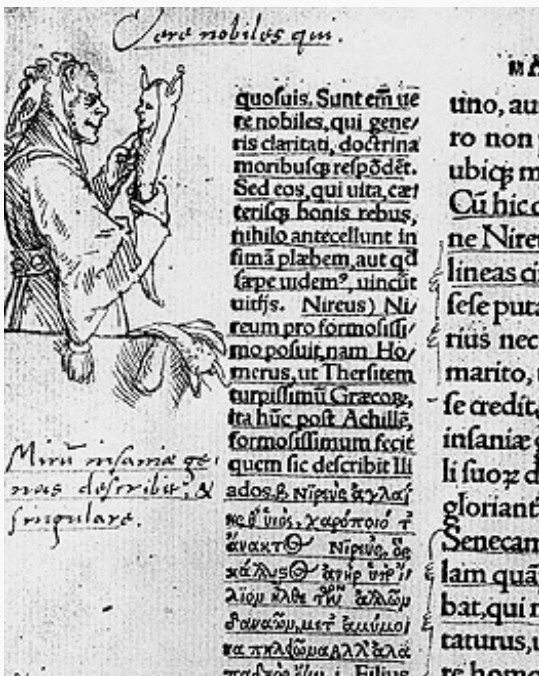 Vere nobiles qui.
Mirũ insaniæ ge-
nus describit, &
singulare.
quoſuis. Sunt em̃ ue
re nobiles, qui gene/
ris claritati, doctrina
moribusqꝫ reſpõdẽt.
Sed eos, qui uita, cæt
terisqꝫ bonis rebus,
nihilo antecellunt in
fimã plæbem, aut qđ
ſæpe uidem⁹, uincũt
uitijs. Nireus) Ni/
reum pro formoſiſſi/
mo poſuit, nam Ho/
merus, ut Therſitem
turpiſſimũ Græcoꝝ,
ita hũc poſt Achillẽ,
formoſiſſimum fecit
quem ſic deſcribit Ili
ados.β Νιρεὺς ἀγλαΐ
χαρόποιό τ'
ἄνακτΘ Νιρεὺς, ὃς
ἀνὴρ
ἦλθε τῶν ἄλλων
Δαναῶν, μετ' ἀμύμο
Filius
uno, au
ro non
ubiqꝫ m
Cũ hic
ne Nireu
lineas ci
ſeſe puta
rius nec
marito,
ſe credit,
inſaniæ g
li ſuoꝝ d
gloriant
Senecam
lam quã
bat, qui
taturus, u
re homo